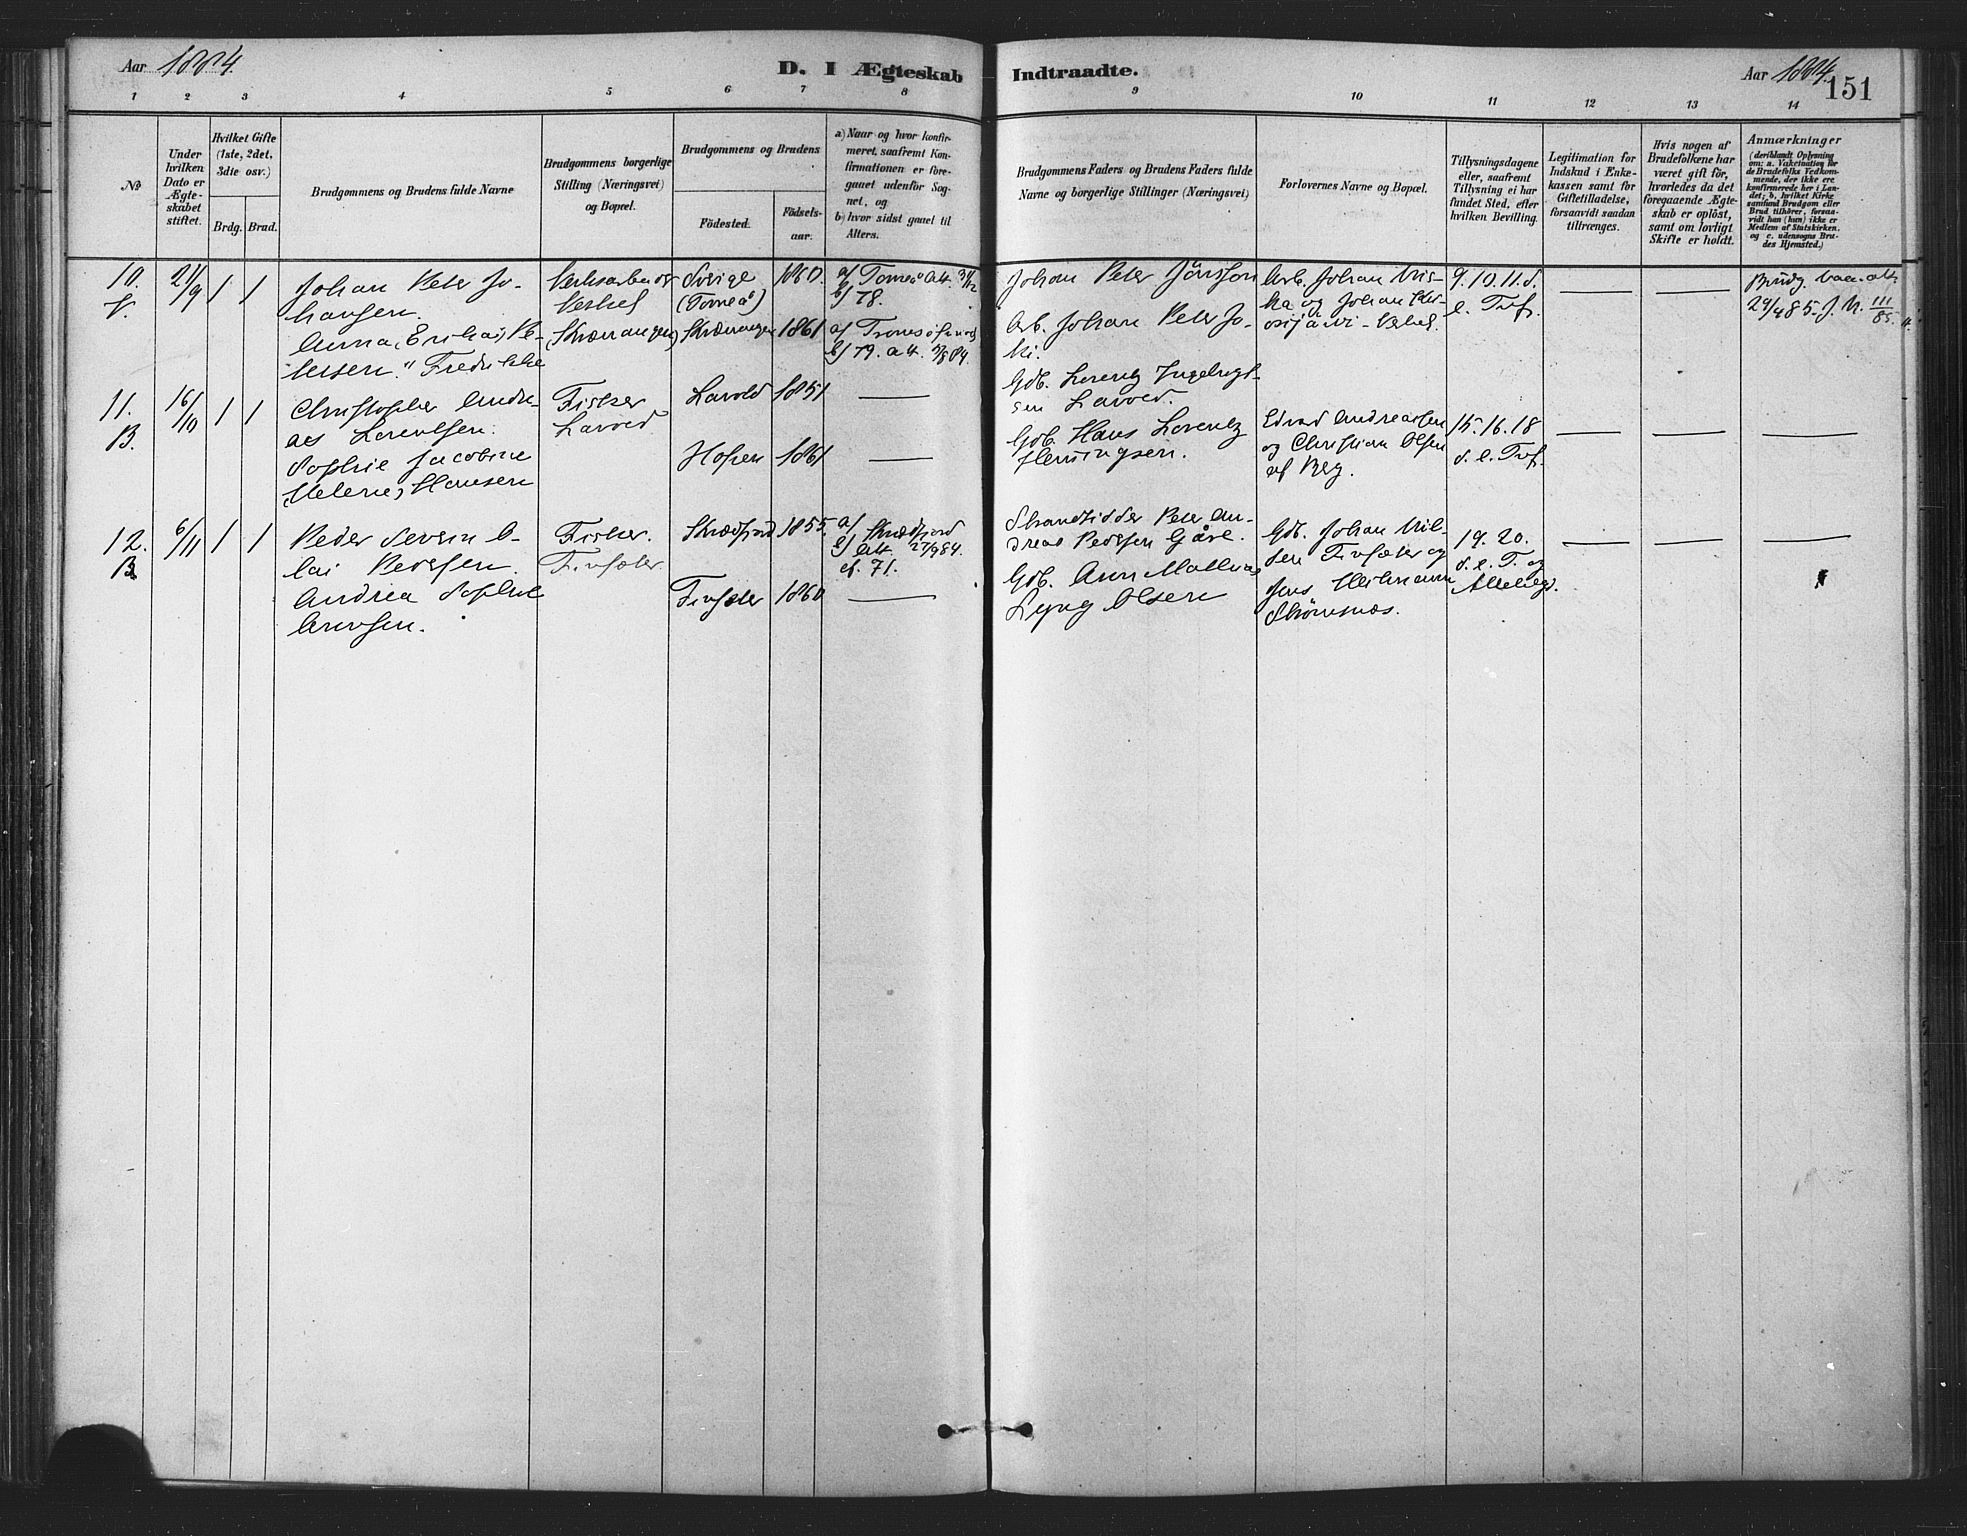 Aar 1884.
D. I Ægteskab Indtraadte.
Aar 1884.
151
1 2 3 4 5 6 7 8 9 10 11 12 13 14
№
Under hvilken Dato er Ægteskabet stiftet.
Hvilket Gifte (1ste, 2det, 3die osv.)
Brdg. Brud.
Brudgommens og Brudens fulde Navne
Brudgommens borgerlige Stilling (Næringsvei) og Bopæl.
Brudgommens og Brudens
Födested.
Födsels-aar.
a) Naar og hvor konfirmeret, saafremt Konfirmationen er foregaaet udenfor Sognet, og
b) hvor sidst gaaet til Alters.
Brudgommens Faders og Brudens Faders fulde Navne og borgerlige Stillinger (Næringsvei)
Forlovernes Navne og Bopæl.
Tillysningsdagene eller, saafremt Tillysning ei har fundet Sted, efter hvilken Bevilling.
Legitimation for Indskud i Enkekassen samt for Giftetilladelse, forsaavidt saadan tiltrænges.
Hvis nogen af Brudefolkene har været gift för, hvorledes da det foregaaende Ægteskab er oplöst, samt om lovligt Skifte er holdt.
Anmærkninger
(deriblandt Oplysning om: a. Vakcination for de Brudefolks Vedkommende, der ikke ere konfirmerede her i Landet; b. hvilket Kirkesamfund Brudgom eller Brud tilhörer, forsaavidt han (hun) ikke er Medlem af Statskirken. og c. udensogns Brudes Hjemsted.)
10. 21/9 1 1
Johan Peter Johansen.
Anna (Erika) Petersen. "Fredrikke
Verksarbeider
(Skværvangen)
Sverige (Torneå) 1860.
Skværvangen 1861
a) Torneå Alt.
b) 78.
a) Tromsö
b) 79. Alt.
Johan Peter Jönsson
Arb. Johan Peter
Arb. Johan
og Johan
9. 10. 11. S. e. Tref.
Brudg. vacc. att. 29/4 85. J. N. 111/85.
11. B. 16/10 1 1
Christopher Andreas Lorentsen.
Sophie Jacobine (Helene) Hansen
Fisker Lavold
Lavold 1851
Hofsen 1861
Gdb. Lorentz Ingebrigtsen Lavold.
Gdb. Hans Lorentz Henningsen.
Edvard Andreassen og Christian Olsen af Berg.
15. 16. 18 S. e. Tref.
12. B 6/11 1 1
Peder Severin Olai Pedersen.
Andrea Sophie Arntsen.
Fisker. Finsæter
Skrædfjord 1855.
Finsæter 1860
a) Skrædfjord
b) Alt. 27/9 84
cf. 71.
Strandsidder Peter Andreas Pedersen Gåre.
Gdb. Arn Mathias Lyng Olsen
Gdb. Johan Finsæter og Jens Heitmann Strömsnæs.
19. 20. S. e. T. og Allehelgd.